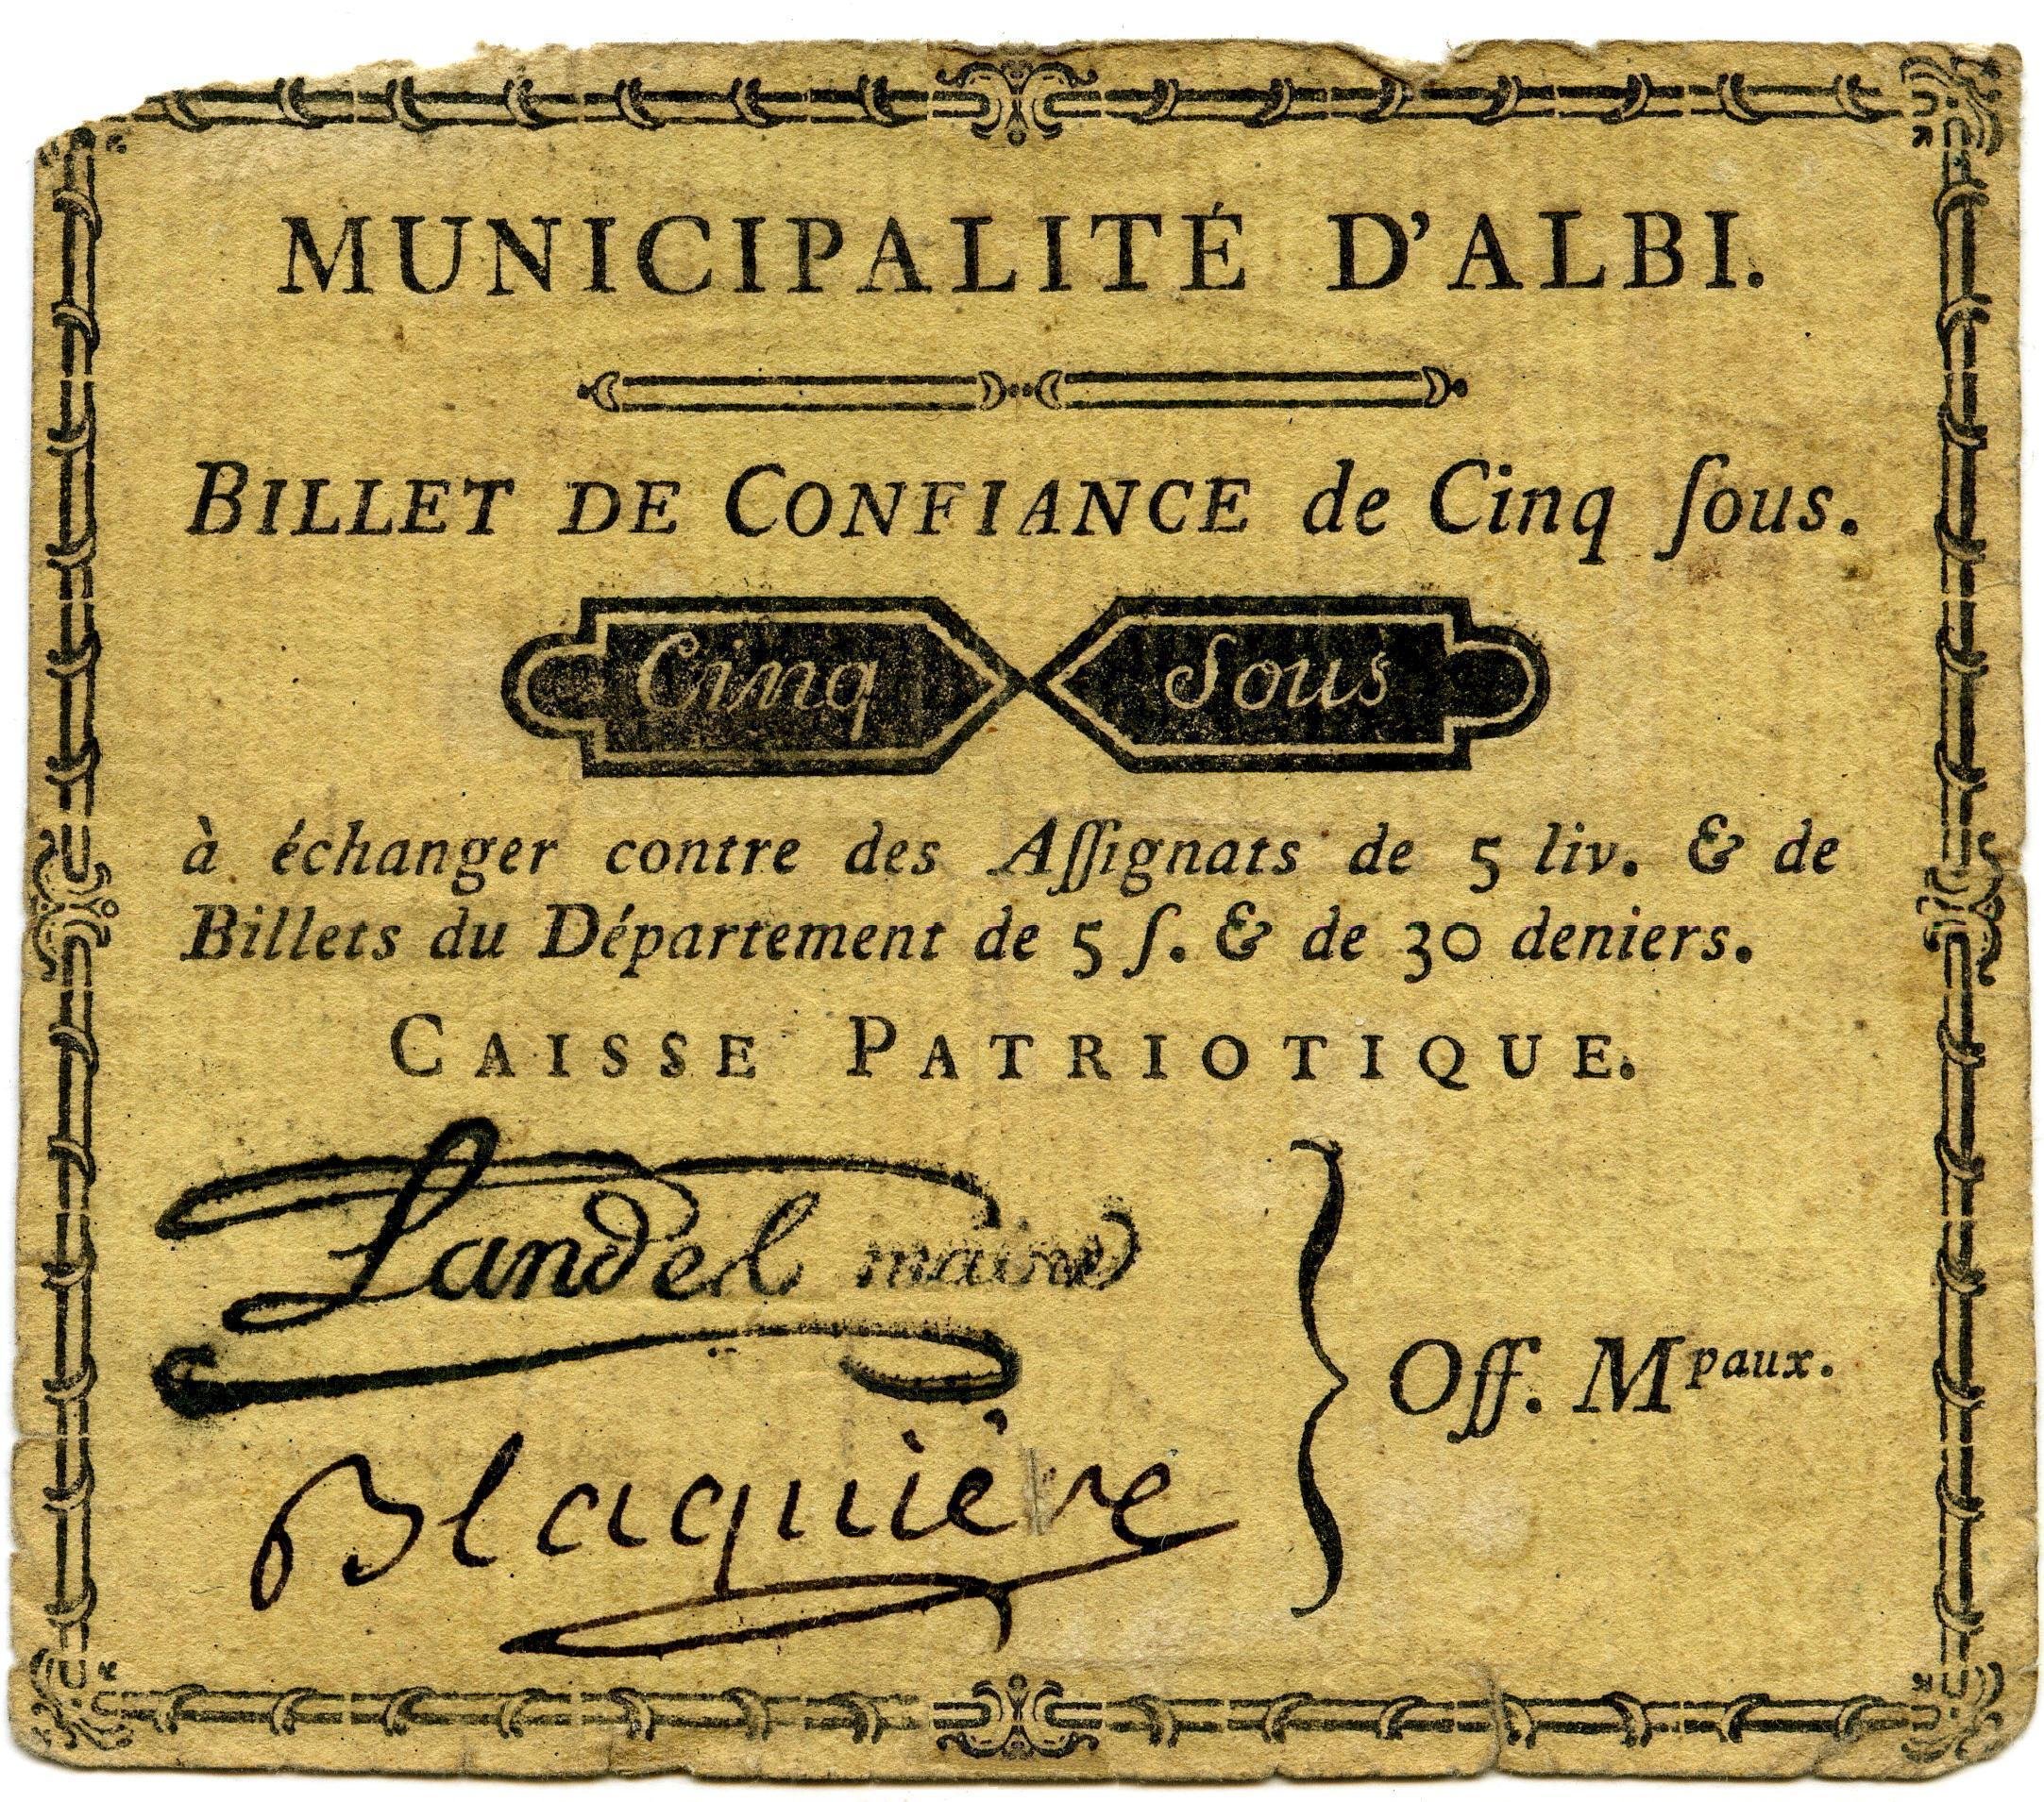 MUNICIPALITÉ D'ALBI.
BILLET DE CONFIANCE de Cinq ſous.
Cinq Sous
à échanger contre des Aſſignats de 5 liv. & de
Billets du Département de 5 ſ. & de 30 deniers.
CAISSE PATRIOTIQUE.
Landel maire
Blaquière
Off. Mpaux.